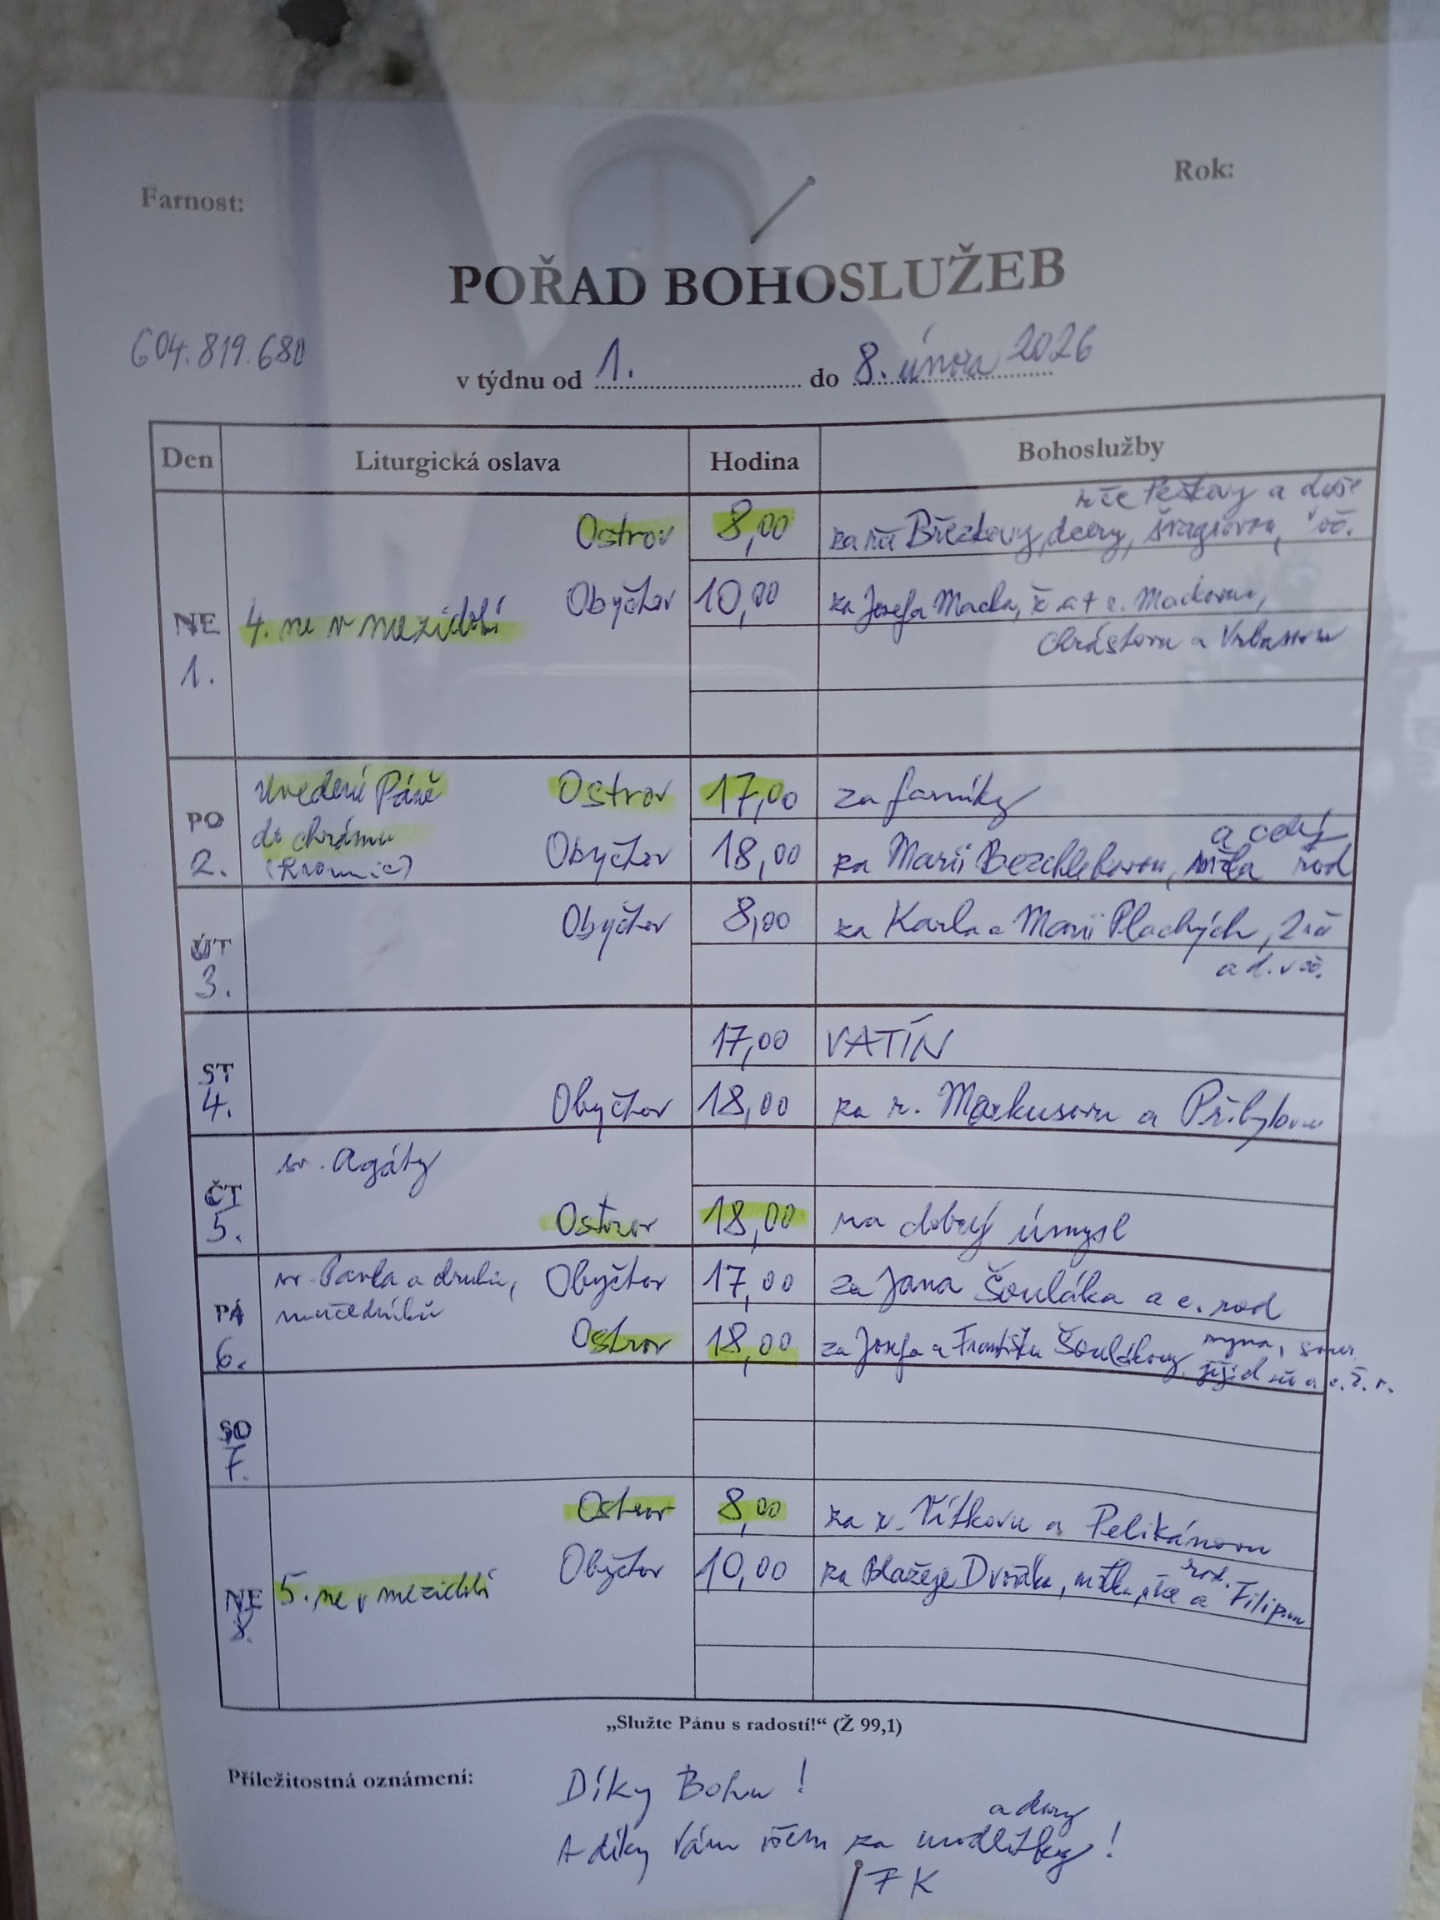 Farnost:
Rok:
POŘAD BOHOSLUŽEB
604.819.680
v týdnu od 1. do 8. února 2026
Den Liturgická oslava Hodina Bohoslužby
Peškovy a duše
Ostrov 8,00 za Březkovy, dcery,
NE 4. ne v mezidobí Obyčtov 10,00 za Josefa Macka,
1. a
PO Uvedení Páně Ostrov 17,00 za farníky
do chrámu a celý
2. (Hromnic) Obyčtov 18,00 za Marii Bezchlebovou, rod
ÚT Obyčtov 8,00 za Karla a Marii Plachých,
3. a d. v oč.
17,00 VATÍN
ST
4. Obyčtov 18,00 za r. Markusovu a Přibylovu
ČT sv. Agáty
5. Ostrov 18,00 na dobrý úmysl
sv. Pavla a druhů, Obyčtov 17,00 za Jana Šouláka a c. rod
PÁ mučedníků
6. Ostrov 18,00 za Josefa a Františku Šoulákovy,
SO
7.
Ostrov 8,00 za r. Vítkovu a Pelikánovu
rod.
NE 5. ne v mezidobí Obyčtov 10,00 za Blažeje Dvořáka, a
8.
„Služte Pánu s radostí!“ (Ž 99,1)
Příležitostná oznámení:
Díky Bohu!
a dary
A díky Vám všem za modlitby!
FK